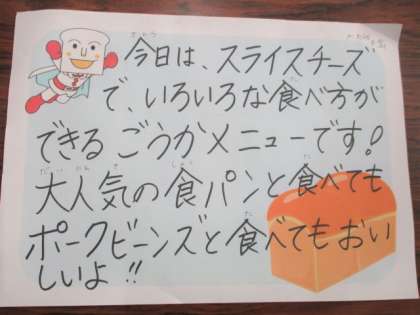 今日は、スライスチーズ
で、いろいろな食べ方が
できる ごうかメニューです!
大人気の食パンと食べても
ポークビーンズと食べてもおい
しいよ!!